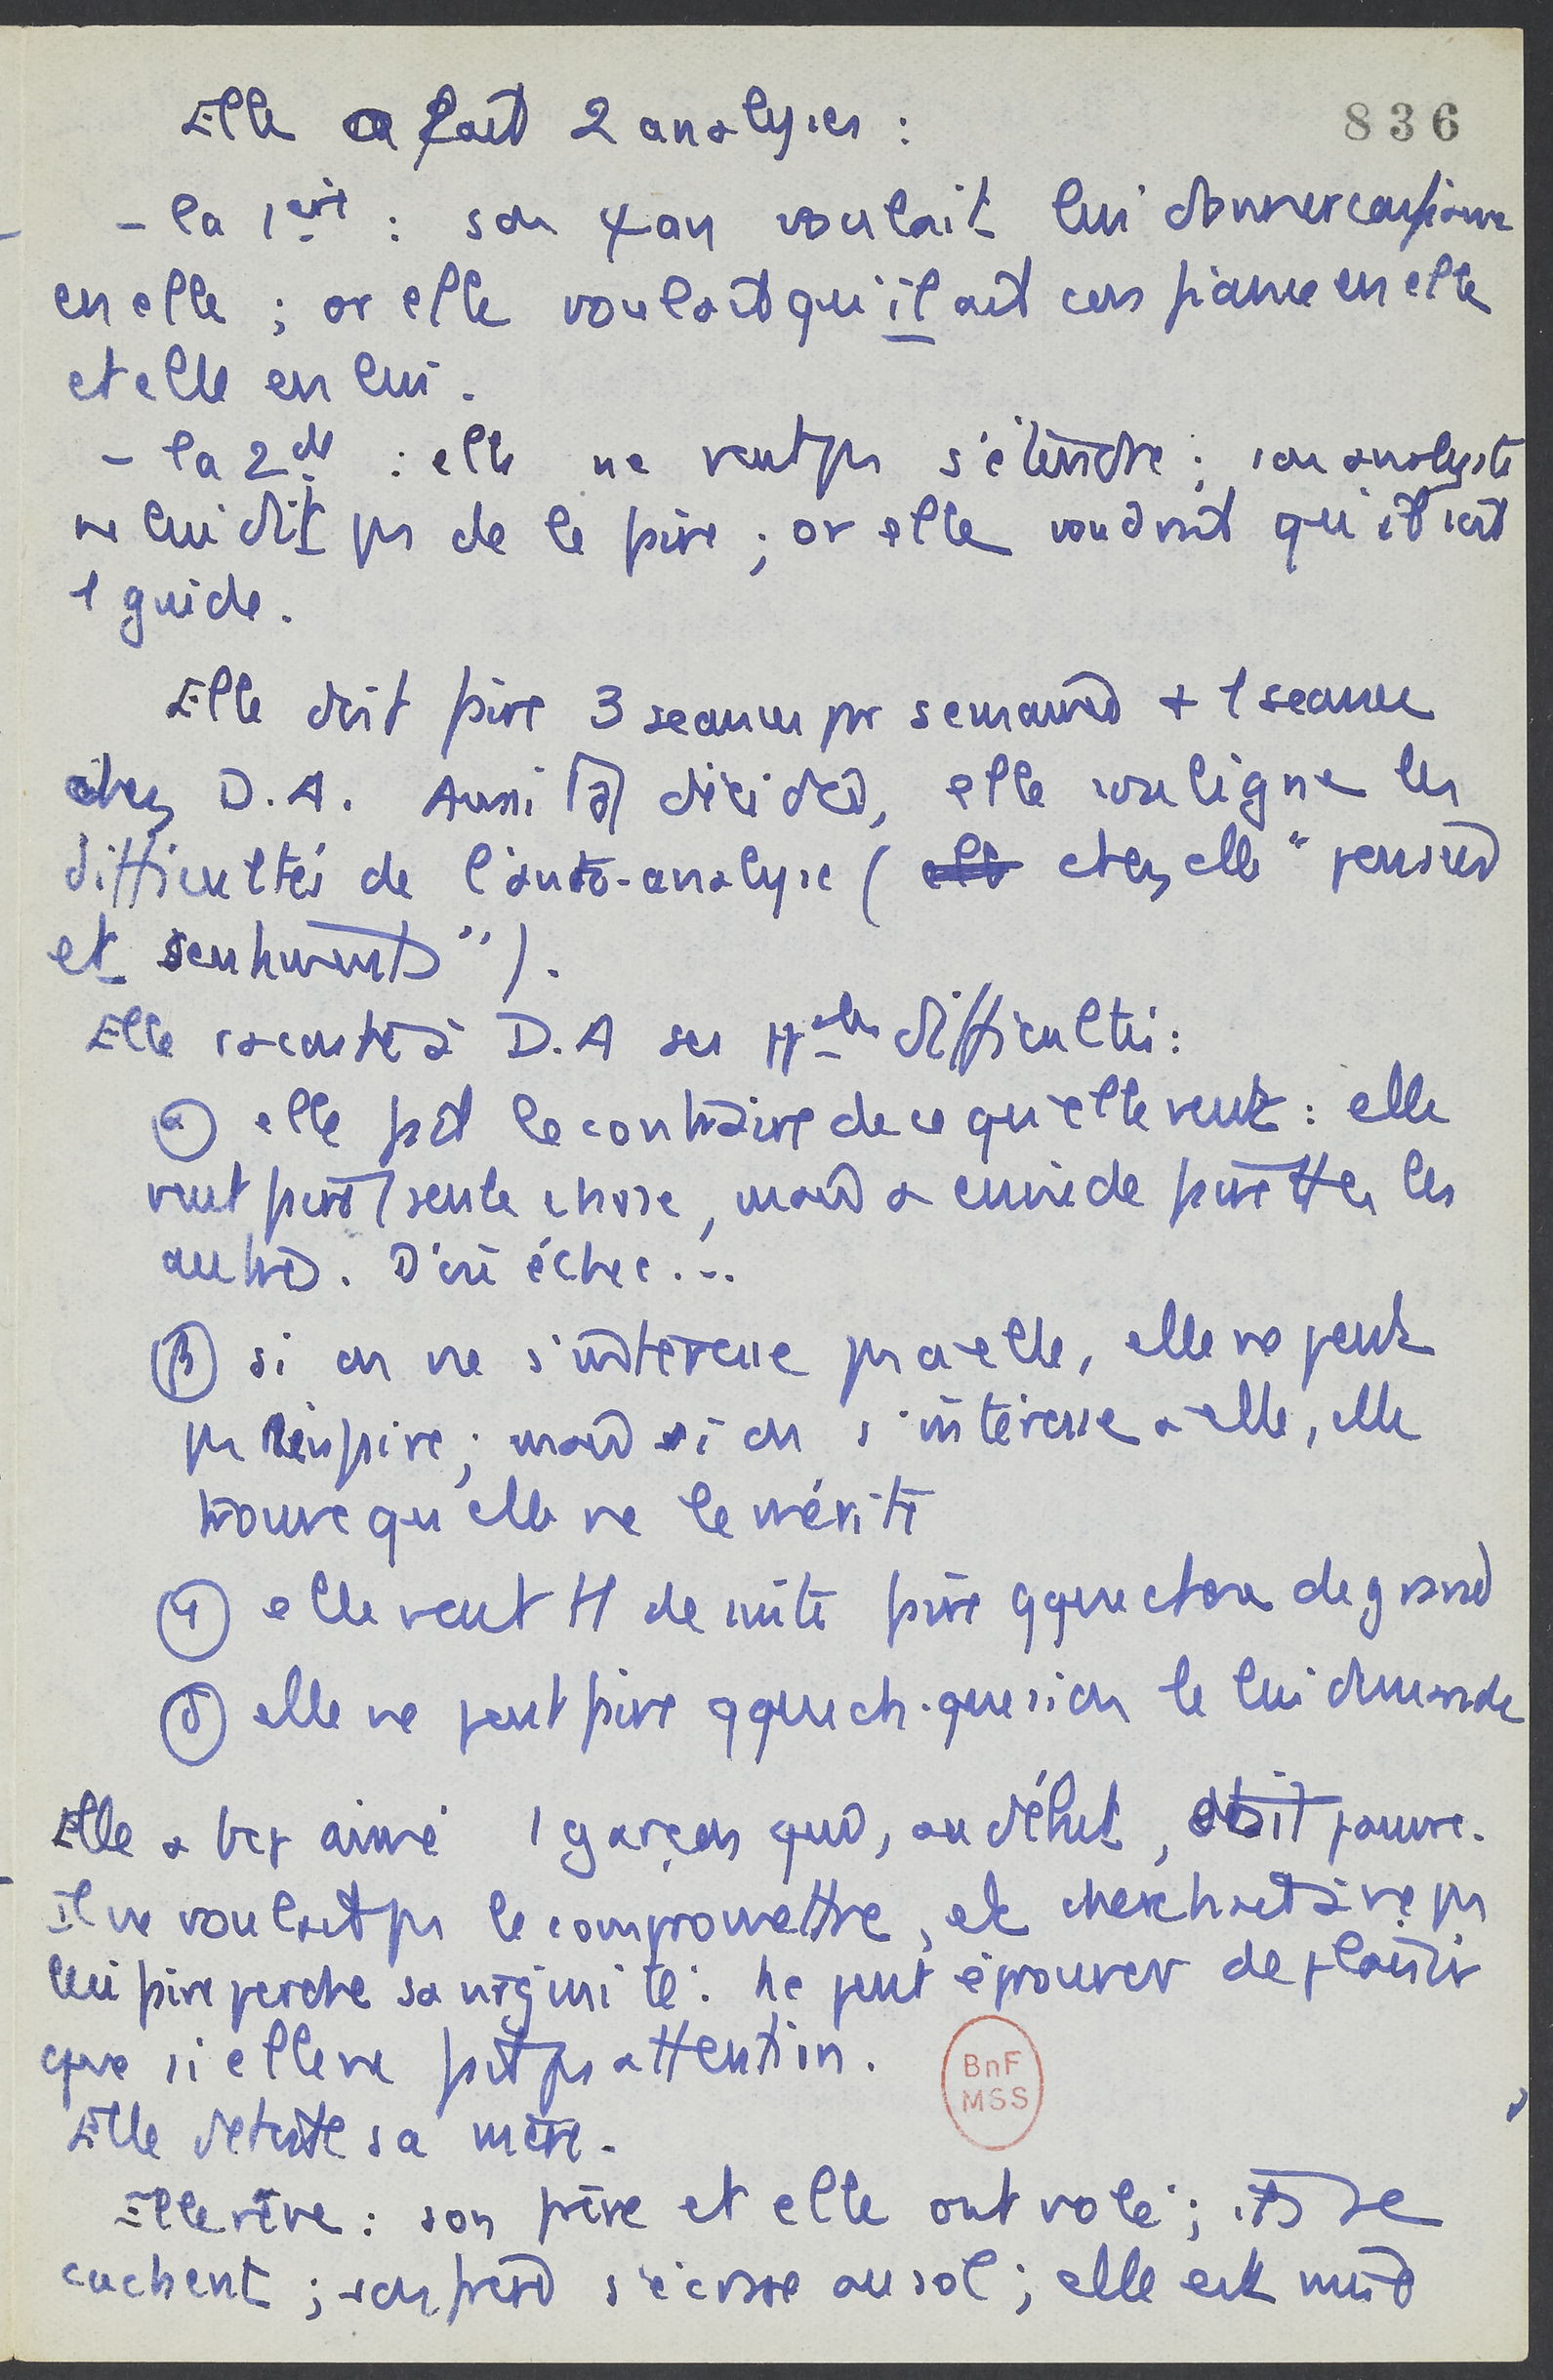 836
Elle a fait 2 analyses :
- la 1ère : son ψan voulait lui donner confiance
en elle ; or elle voulait qu'il ait confiance en elle
et elle en lui.
- la 2de : elle ne veut ps s'étendre ; son analyste
ne lui dit ps de le faire ; or elle voudrait qu'il soit
1 guide.
Elle doit faire 3 séances pr semaine + 1 séance
chez D.A. Aussitôt décidé, elle souligne les
difficultés de l'auto-analyse ( chez elle "pensées
et sentiments").
Elle raconte à D.A ses difficultés :
α) elle fait le contraire de ce qu'elle veut : elle
veut faire 1 seule chose, mais a envie de faire ttes les
autres. D'où échec...
β) si on ne s'intéresse ps à elle, elle ne peut
ps rien faire ; mais si on s'intéresse à elle, elle
trouve qu'elle ne le mérite
γ) elle veut tt de suite faire qque chose de grand
δ) elle ne peut faire qque ch. que si on le lui demande
Elle a bcp aimé 1 garçon qui, au début, était pauvre.
Il ne voulait ps le compromettre, et cherchait à ne ps
lui faire perdre sa virginité : ne peut éprouver de plaisir
que si elle ne fait ps attention.
Elle déteste sa mère.
BnF
MSS
Elle rêve : son frère et elle ont volé ; ils se
cachent ; son frère s'écrase au sol ; elle est